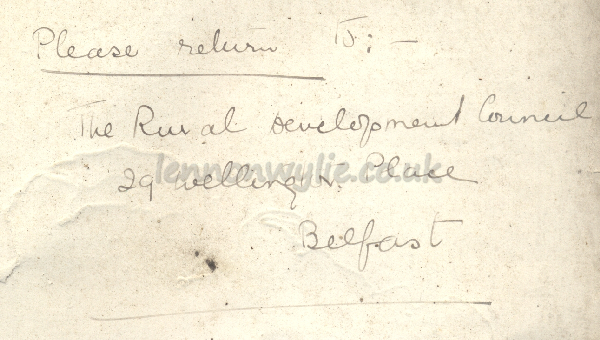 Please return To : -
The Rural Development Council
lennonwylie.co.uk
29 Wellington Place
Belfast